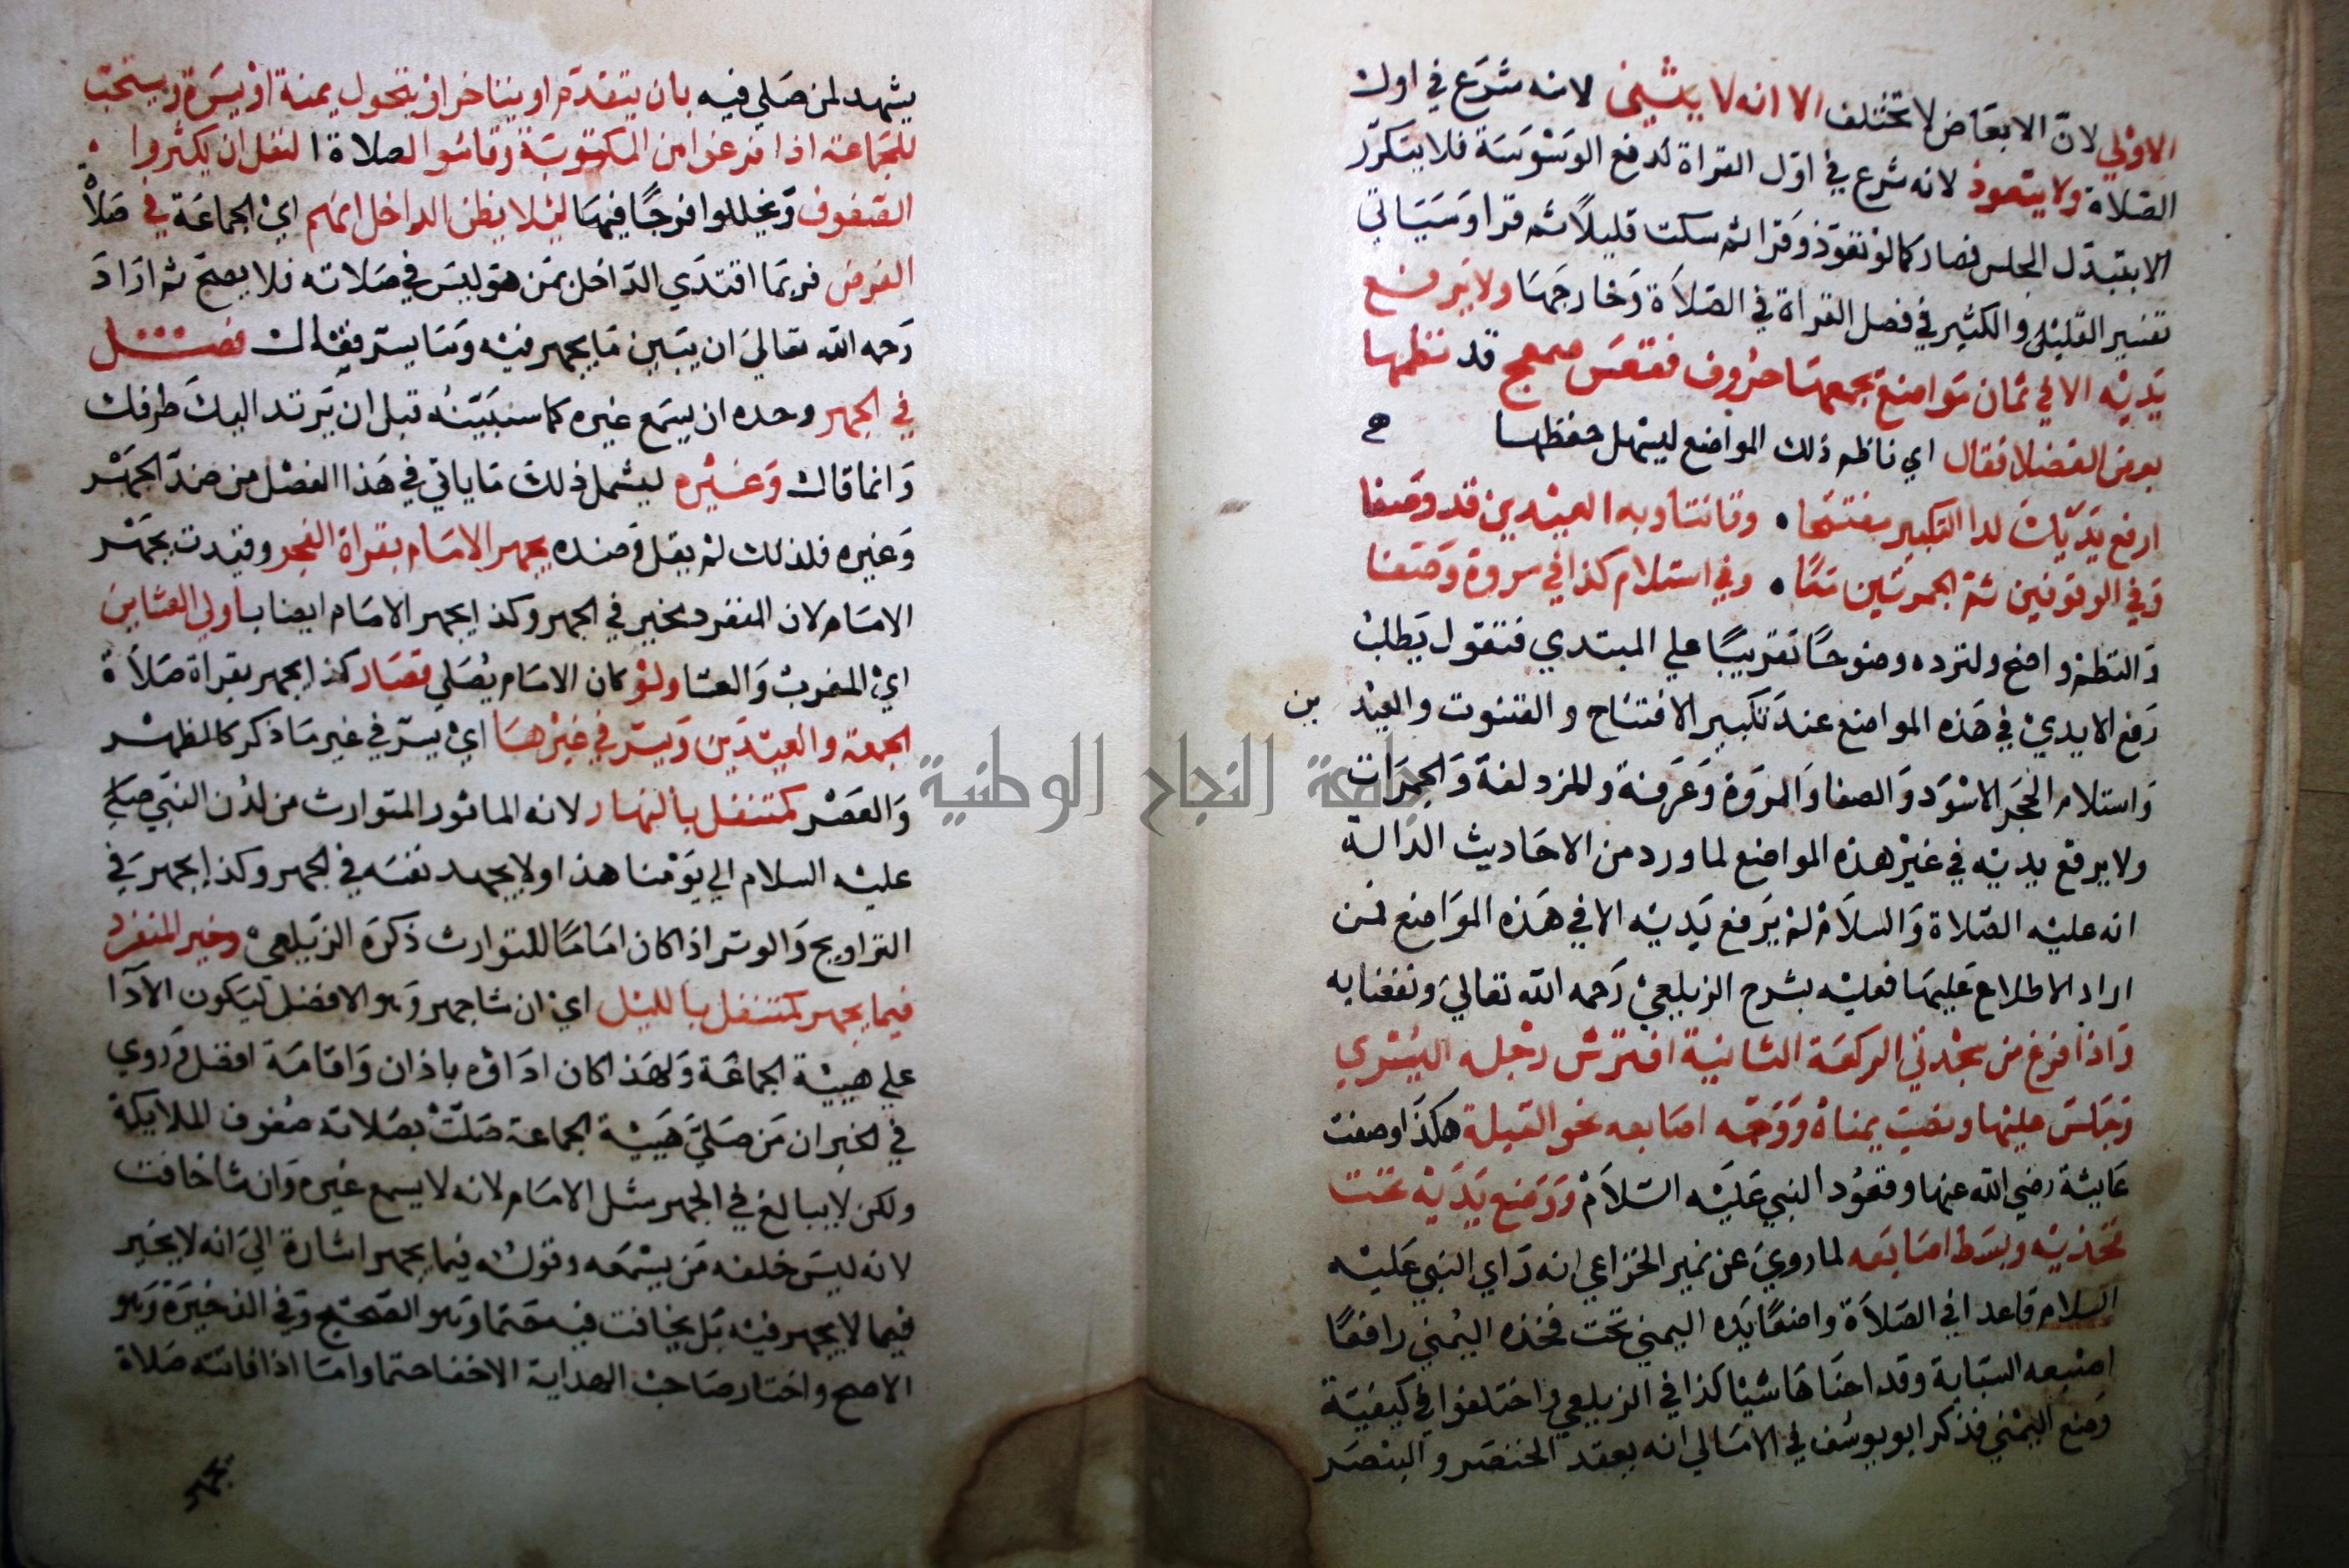 الاولي لانّ الابعاض لا تختلف الا انه لا يثني لانه شرع في اول
الصلاة ولا يتعوذ لانه شرع في اول القراة لدفع الوسوسة فلا يتكرّر
الا بتبدّل المجلس فصار كما لو تعوّذ وقرا ثم سكت قليلاً ثم قرا وسياتي
تفسير القليل والكثير في فصل القراة في الصلاة وخارجها ولا يرفع
يديه الا في ثمان مواضع يجمعها حروف فقعس صمعج قد نظمها
بعض الفضلا فقال اي ناظم ذلك المواضع ليسهل حفظها
ارفع يديك لدا التكبير مفتتحا • وقانتا وبه العيدين قد وصفا
وفي الوقوفين ثم الجمرتين معًا • وفي استلام كذا في مروة وصفا
والنظم واضح ولنزده وضوحًا تقريبًا علي المبتدي فنقول يطلب
رفع الايدي في هذه المواضع عند تكبير الافتتاح والقنوت والعيدين
واستلام الحجر الاسود والصفا والمروة وعرفة والمزدلفة والجمرات
ولا يرفع يديه في غير هذه المواضع لما ورد من الاحاديث الدالة
انه عليه الصلاة والسلام لم يرفع يديه الا في هذه المواضع فمن
اراد الاطلاع عليها فعليه بشرح الزيلعي رحمه الله تعالي ونفعنا به
واذا فرغ من سجدتي الركعة الثانية افترش رجله اليسري
وجلس عليها ونصب يمناه ووجّه اصابعه نحو القبلة هكذا وصفت
عايشة رضي الله عنها وقعود النبي عليه السلام ووضع يديه تحت
فخذيه وبسط اصابعه لما روي عن نمير الخزاعي انه راي النبي عليه
السلام قاعدا في الصلاة واضعًا يده اليمني تحت فخذه اليمني رافعًا
اصبعه السبابة وقد احناها شيئا كذا في الزيلعي واختلفوا في كيفية
وضع اليمني فذكر ابو يوسف في الامالي انه يعقد الخنصر والبنصر
يشهد لمن صلي فيه بان يتقدم او يتاخر او يتحول يمنة او يسرة ويستحب
للجماعة اذا فرغوا من المكتوبة وقاموا لصلاة النفل ان يكثروا
الصفوف ويخللوا فرجًا فيها ليلا يظن الداخل انهم اي الجماعة في صلاة
الفرض فربما اقتدي الداخل بمن هو ليس في صلاته فلا يصح ثم اراد
رحمه الله تعالي ان يبين ما يجهر فيه وما يسر فقال فصل
في الجهر وحده ان يسمع غيره كما سنبينه قبل ان يرتد اليك طرفك
وانما قال وغيره ليشمل ذلك ما ياتي في هذا الفصل من ضد الجهر
وغيره فلذلك لم يقل وضده يجهر الامام بقراة الفجر وقيدت بجهر
الامام لان المنفرد مخير في الجهر وكذا يجهر الامام ايضا باولي العشاين
اي المغرب والعشا ولو كان الامام يصلي قضا وكذا يجهر بقراة صلاة
الجمعة والعيدين ويسر في غيرها اي يسر في غير ما ذكر كالظهر
والعصر كمتنفل بالنهار لانه الماثور المتوارث من لدن النبي صلي
عليه السلام الي يومنا هذا ولا يجهد نفسه في الجهر وكذا يجهر في
التراويح والوتر اذا كان اماما للتوارث ذكره الزيلعي وخير المنفرد
فيما يجهر كمتنفل بالليل اي ان شا جهر وهو الافضل ليكون الادآ
علي هيئة الجماعة ولهذا كان اداؤه باذان واقامة افضل وروي
في الخبر ان من صلي هيئة الجماعة صلت بصلاته صفوف الملايكة
ولكن لا يبالغ في الجهر مثل الامام لانه لا يسمع غيره وان شا خافت
لانه ليس خلفه من يسمعه وقوله فيما يجهر اشارة الي انه لا يخير
فيما لا يجهر فيه بل يخافت فيه حتما وهو الصحيح وفي الذخيرة وهو
الاصح واختار صاحب الهداية الاخفا حتما واما اذا فاتته صلاة
يجهر
جامعة النجاح الوطنية